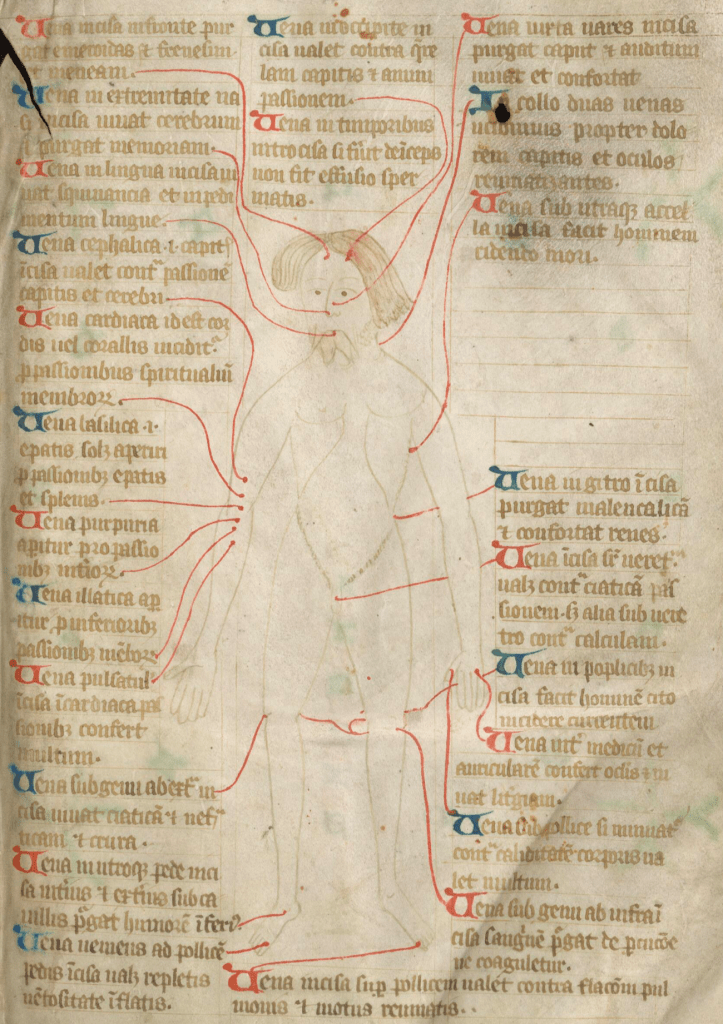 Uena incisa in fronte pur
gat emeroidas & frenesim
et meneam.
Uena in extremitate na
si incisa iuuat cerebrum
& purgat memoriam.
Uena in lingua incisa iu
uat squinancia et inpedi
mentum lingue.
Uena cephalica .i. capit᷑
īcisa ualet cont᷑ passione
capitis et cerebri.
Uena cardiaca id est cor
dis uel corallis incidit᷑.
ꝓ passionibus spiritualiū
membroꝝ.
Uena basilica .i.
epatis solꝫ aperiri
ꝓ passionibꝫ epatis
et splenis.
Uena purpuria
apitur pro passio
nibꝫ
Uena illatica ap
itur, ꝓ inferioribꝫ
passionibꝫ mēbroꝝ.
Uena pulsatil᷑
īcisa ī cardiaca pas
sionibꝫ confert
multum.
Uena sub genu in
cisa iuuat ciaticā ⁊
ticam ⁊ crura.
Uena in utroqꝫ pede inci
sa intius ⁊ extius sub ca
uillis pᷓgat humorē īferiꝰ
Uena ueniens ad pollicē
pedis īcisa ualꝫ repletis
uētositate īflatis.
Uena in occipite in
cisa ualet contra que
lam capitis ⁊ animi
passionem.
Uena in timporibus
intro cisa si fūt deīceps
non fit effusio sper
matis.
Uena iuxta nares incisa
purgat caput & auditum
iuuat et confortat
In collo duas uenas
incidimus propter dolo
rem capitis et oculos
reumatizantes.
Uena sub utraqꝫ accel
la incisa facit hominem
ridendo mori.
Uena in gitro īcisa
purgat malencalicā
⁊ confortat renes.
Uena īcisa sr̄ ueret᷑.
ualꝫ cont᷑ ciaticā pas
sionem. sꝫ alia sub uere
tro cont᷑ calculam.
Uena in poplicibꝫ in
cisa facit hominē cito
incidere currentem
Uena int᷑ medicū et
auriculare confert oclis ⁊ iu
uat litgiam.
Uena sub pollice si minuat᷑
cont᷑ caliditatē corporis ua
let multum.
Uena sub genu ab infra ī
cisa sanguē pᷓgat de
ne coaguletur.
Uena incisa suꝑ pollicem ualet contra flacom pul
monis ⁊ motus reumatis.